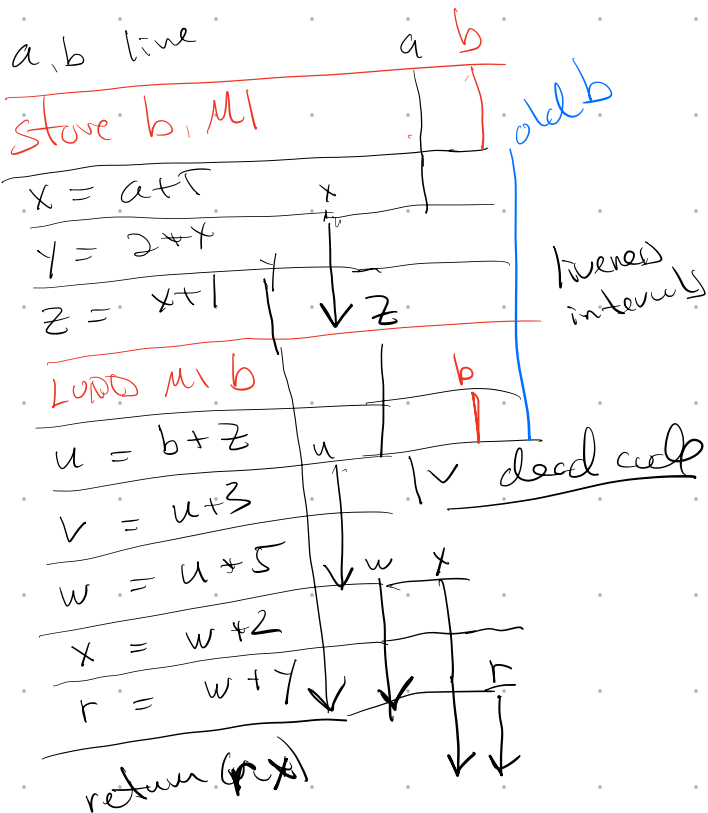 a, b line a b
store b, M1
old b
x = a+5 x
y = 2*x
z = x+1 y z
liveness
intervals
LOAD M1 b b
u = b+z u
v dead code
v = u+3
w = u*5 w x
x = w+2
r = w+y r
return (r x)